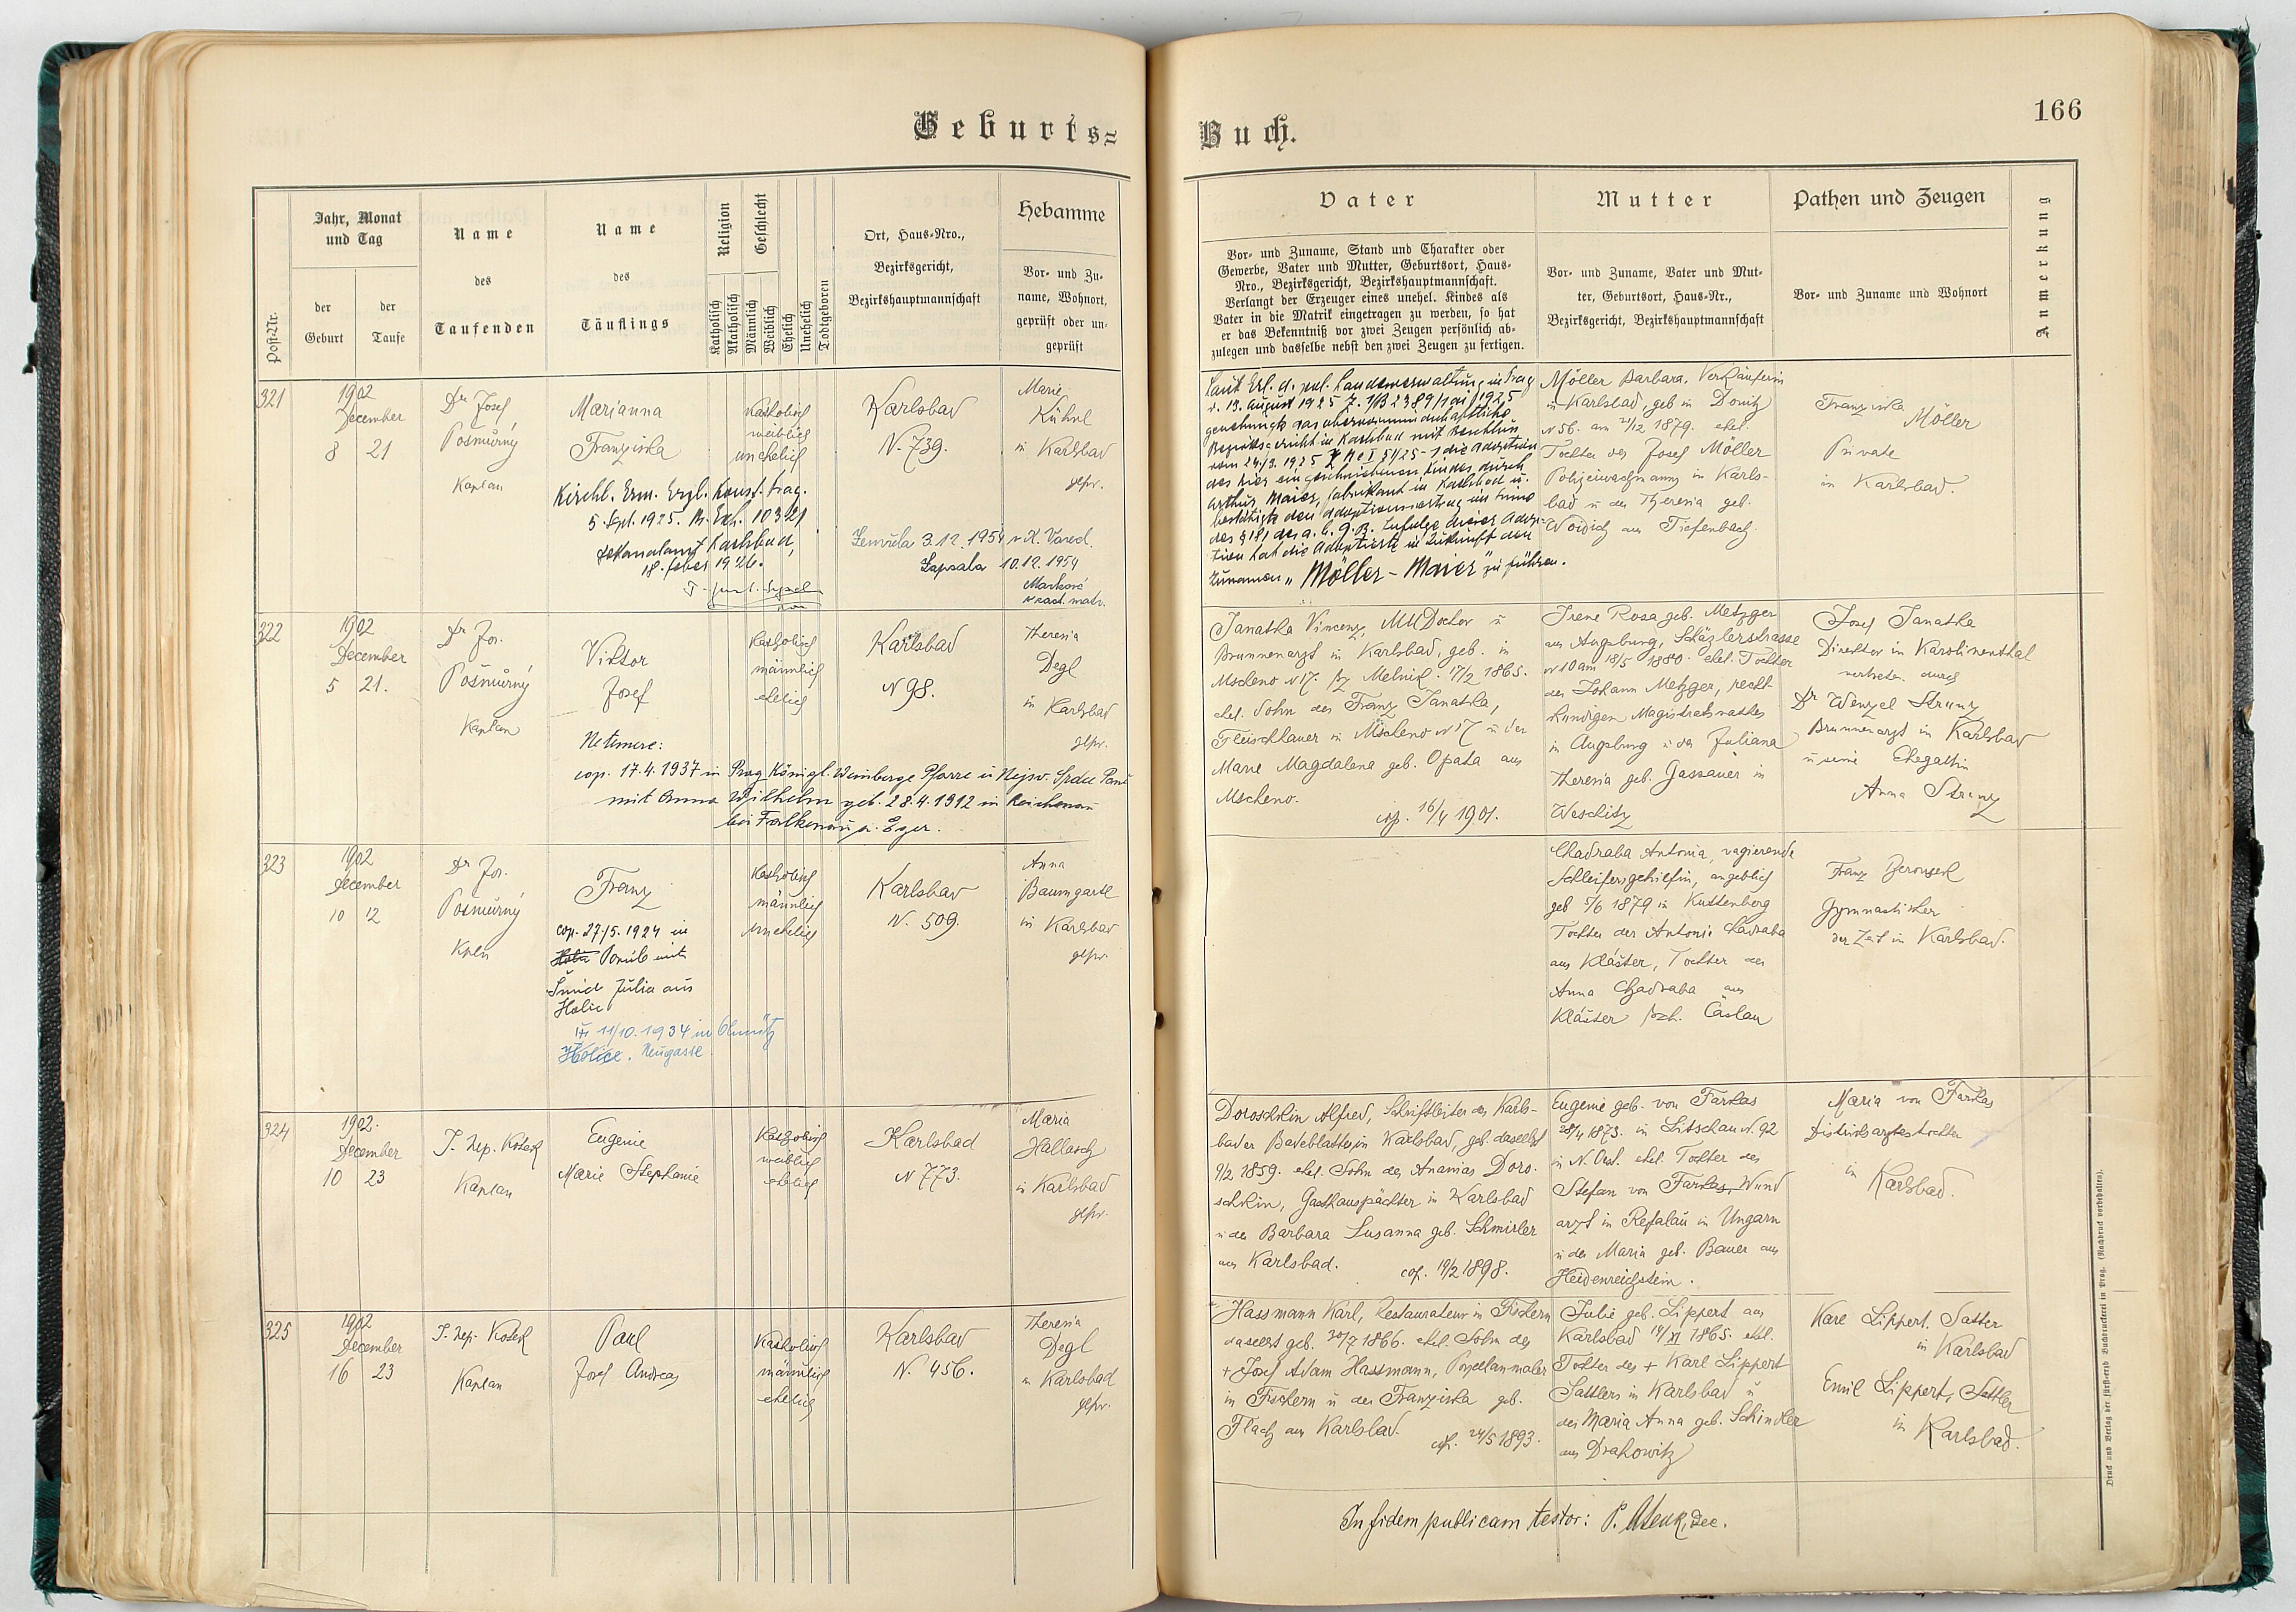 Geburts=
Buch.
166
Post-Nr.
Jahr, Monat
und Tag
der
Geburt
der
Taufe
Name
des
Taufenden
Name
des
Täuflings
Religion
Katholisch
Akatholisch
Geschlecht
Männlich
Weiblich
Ehelich
Unehelich
Todtgeboren
Ort, Haus-Nro.,
Bezirksgericht,
Bezirkshauptmannschaft
Hebamme
Vor- und Zu-
name, Wohnort,
geprüft oder un-
geprüft
Vater
Vor- und Zuname, Stand und Charakter oder
Gewerbe, Vater und Mutter, Geburtsort, Haus-
Nro., Bezirksgericht, Bezirkshauptmannschaft.
Verlangt der Erzeuger eines unehel. Kindes als
Vater in die Matrik eingetragen zu werden, so hat
er das Bekenntniß vor zwei Zeugen persönlich ab-
zulegen und dasselbe nebst den zwei Zeugen zu fertigen.
Mutter
Vor- und Zuname, Vater und Mut-
ter, Geburtsort, Haus-Nr.,
Bezirksgericht, Bezirkshauptmannschaft
Pathen und Zeugen
Vor- und Zuname und Wohnort
Anmerkung
321
1902
December
8 21
Dr Josef
Pošmůrný
Kaplan
Marianna
Franziska
Kirchl. Erm. Ergl. Konst. Prag.
5. Sept. 1925. Nr. Exh. 10321
Dekanalamt Karlsbad,
18. feber 1926.
Katholisch
weiblich
unehelich
Karlsbad
N. 739.
Zemřela 3.12.1954 v K. Varech.
Zapsala 10.12.1954
Marie
Kühnl
in Karlsbad
gepr.
Laut Erl. d. pol. Landesverwaltung in Prag
v. 13. August 1925 Z. 1/B 2389/1 ai/1925
genehmigte das obervormundschaftliche
Bezirksgericht in Karlsbad mit Beschluss
vom 24./3. 1925 die Adoption
des hier eingeschriebenen Kindes durch
Arthur Maier, Fabrikant in Karlsbad u.
bestätigte den Adoptionsvertrag im Sinne
des § 181 des a. b. G. B. Zufolge dieser Adop-
tion hat die Adoptierte in Zukunft den
Zunamen „Möller - Maier" zu führen.
Möller Barbara, Verkäuferin
in Karlsbad, geb in Donitz
N 56. am 2/12 1879. ehel.
Tochter des Josef Möller
Polizeiwachmanns in Karls-
bad u der Theresia geb.
Woidich aus Tiefenbach.
Franziska Möller
Private
in Karlsbad.
322
1902
December
5 21.
Dr Jos.
Pošmůrný
Kaplan
Viktor
Josef
Netemere:
cop. 17.4.1937 in Prag Königl. Weinberge Pfarre u Nejsv. Srdce Paně
mit Anna Wilhelm geb. 28.4.1912 in Reichenau
bei Falkenau a. Eger.
Katholisch
männlich
ehelich
Karlsbad
N 98.
Theresia
Degl
in Karlsbad
gepr.
Janatka Vincenz, MUDoctor u
Brunnenarzt in Karlsbad, geb. in
Mscheno N 17. bz Melnik. 17/2 1865.
ehel. Sohn des Franz Janatka,
Fleischhauer in Mscheno N 17 u der
Marie Magdalena geb. Opata aus
Mscheno.
cop. 16/4 1901.
Irene Rosa geb. Metzger
aus Augsburg, Schäzlerstrasse
N 10 am 18/5 1880. ehel. Tochter
des Johann Metzger, recht-
kundigen Magistratsrathes
in Augsburg u der Juliana
Theresia geb. Gassauer in
Weschitz
Josef Janatka
Direktor in Karolinenthal
vertreten durch
Dr Wenzel Strunz
Brunnenarzt in Karlsbad
u seine Ehegattin
Anna Strunz
323
1902
December
10 12
Dr Jos.
Pošmůrný
Kpln
Franz
cop. 27/5. 1924 in
Porub mit
Šmid Julia aus
Holic
11/10. 1934 in Olmütz
Holice. Neugasse
Katholisch
männlich
Unehelich
Karlsbad
N. 509.
Anna
Baumgartl
in Karlsbad
gepr.
Chadraba Antonia, vagierende
Schleifersgehilfin, angeblich
geb 5/6 1879 in Kuttenberg
Tochter der Antonie Chadraba
aus Klášter, Tochter der
Anna Chadraba aus
Klášter bzh. Čáslau
Franz Berousek
Gymnastiker
der Zeit in Karlsbad.
324
1902.
December
10 23
J. Nep. Kosek
Kaplan
Eugenie
Marie Stephanie
Katholisch
weiblich
ehelich
Karlsbad
N 773.
Maria
Hallasch
in Karlsbad
gepr.
Doroschkin Alfred, Schriftleiter des Karls-
bader Badeblattes in Karlsbad, geb. daselbst
9/2 1859. ehel. Sohn des Ananias Doro-
schkin, Gasthauspächter in Karlsbad
u der Barbara Susanna geb. Schmirler
aus Karlsbad.
cop. 19/2 1898.
Eugenie geb. von Farkas
28/4 1873. in Litschau N. 92
in N. Öst. ehel. Tochter des
Stefan von Farkas, Wund
arzt in Refalau in Ungarn
u der Maria geb. Bauer aus
Heidenreichstein.
Maria von Farkas
Districtsarztestochter
in
Karlsbad.
325
1902
December
16 23
J. Nep. Kosek
Kaplan
Paul
Josef Andreas
Katholisch
männlich
ehelich
Karlsbad
N. 456.
Theresia
Degl
in Karlsbad
gepr.
Hassmann Karl, Restaurateur in Fischern
daselbst geb. 20/7 1866. ehel. Sohn des
+ Josef Adam Hassmann, Porzellanmaler
in Fischern u der Franziska geb.
Flach aus Karlsbad.
cop. 24/5 1893.
Julie geb. Lippert aus
Karlsbad 14/XI 1865. ehel.
Tochter des + Karl Lippert
Sattlers in Karlsbad u
der Maria Anna geb. Schindler
aus Drahowitz
Karl Lippert, Sattler
in Karlsbad
Emil Lippert, Sattler
in
Karlsbad.
In fidem publicam testor:
Druck und Verlag der fürsterzb. Buchdruckerei in Prag. (Nachdruck vorbehalten).